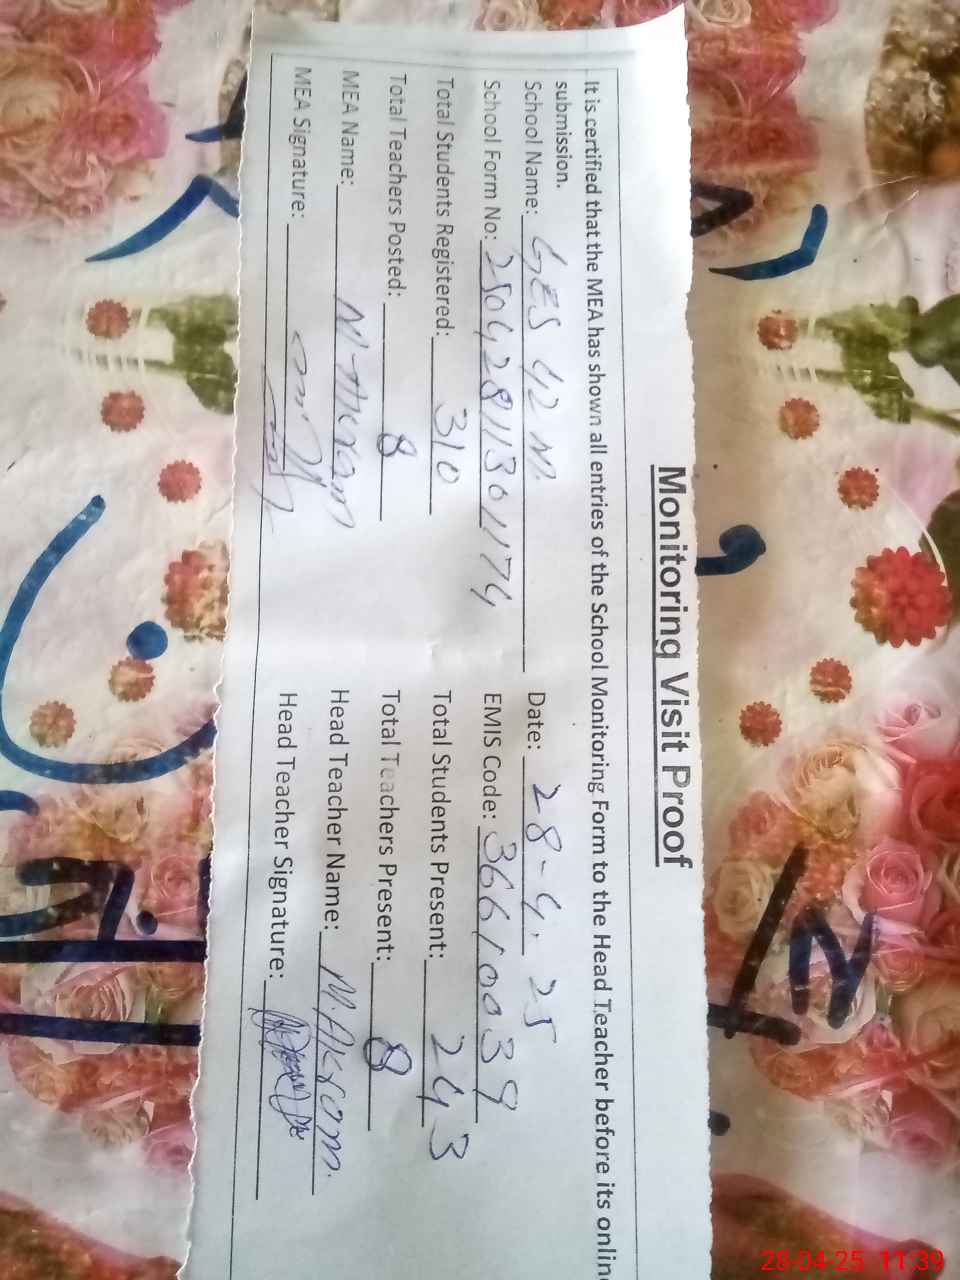 Monitoring Visit Proof
It is certified that the MEA has shown all entries of the School Monitoring Form to the Head Teacher before its online
submission.
School Name: GES 42 M. Date: 28-4.25
School Form No: 25042811301174 EMIS Code: 36610039
Total Students Registered: 310 Total Students Present: 243
Total Teachers Posted: 8 Total Teachers Present: 8
MEA Name: Head Teacher Name: M. Akram.
MEA Signature: Head Teacher Signature:
28-04-25 11:39